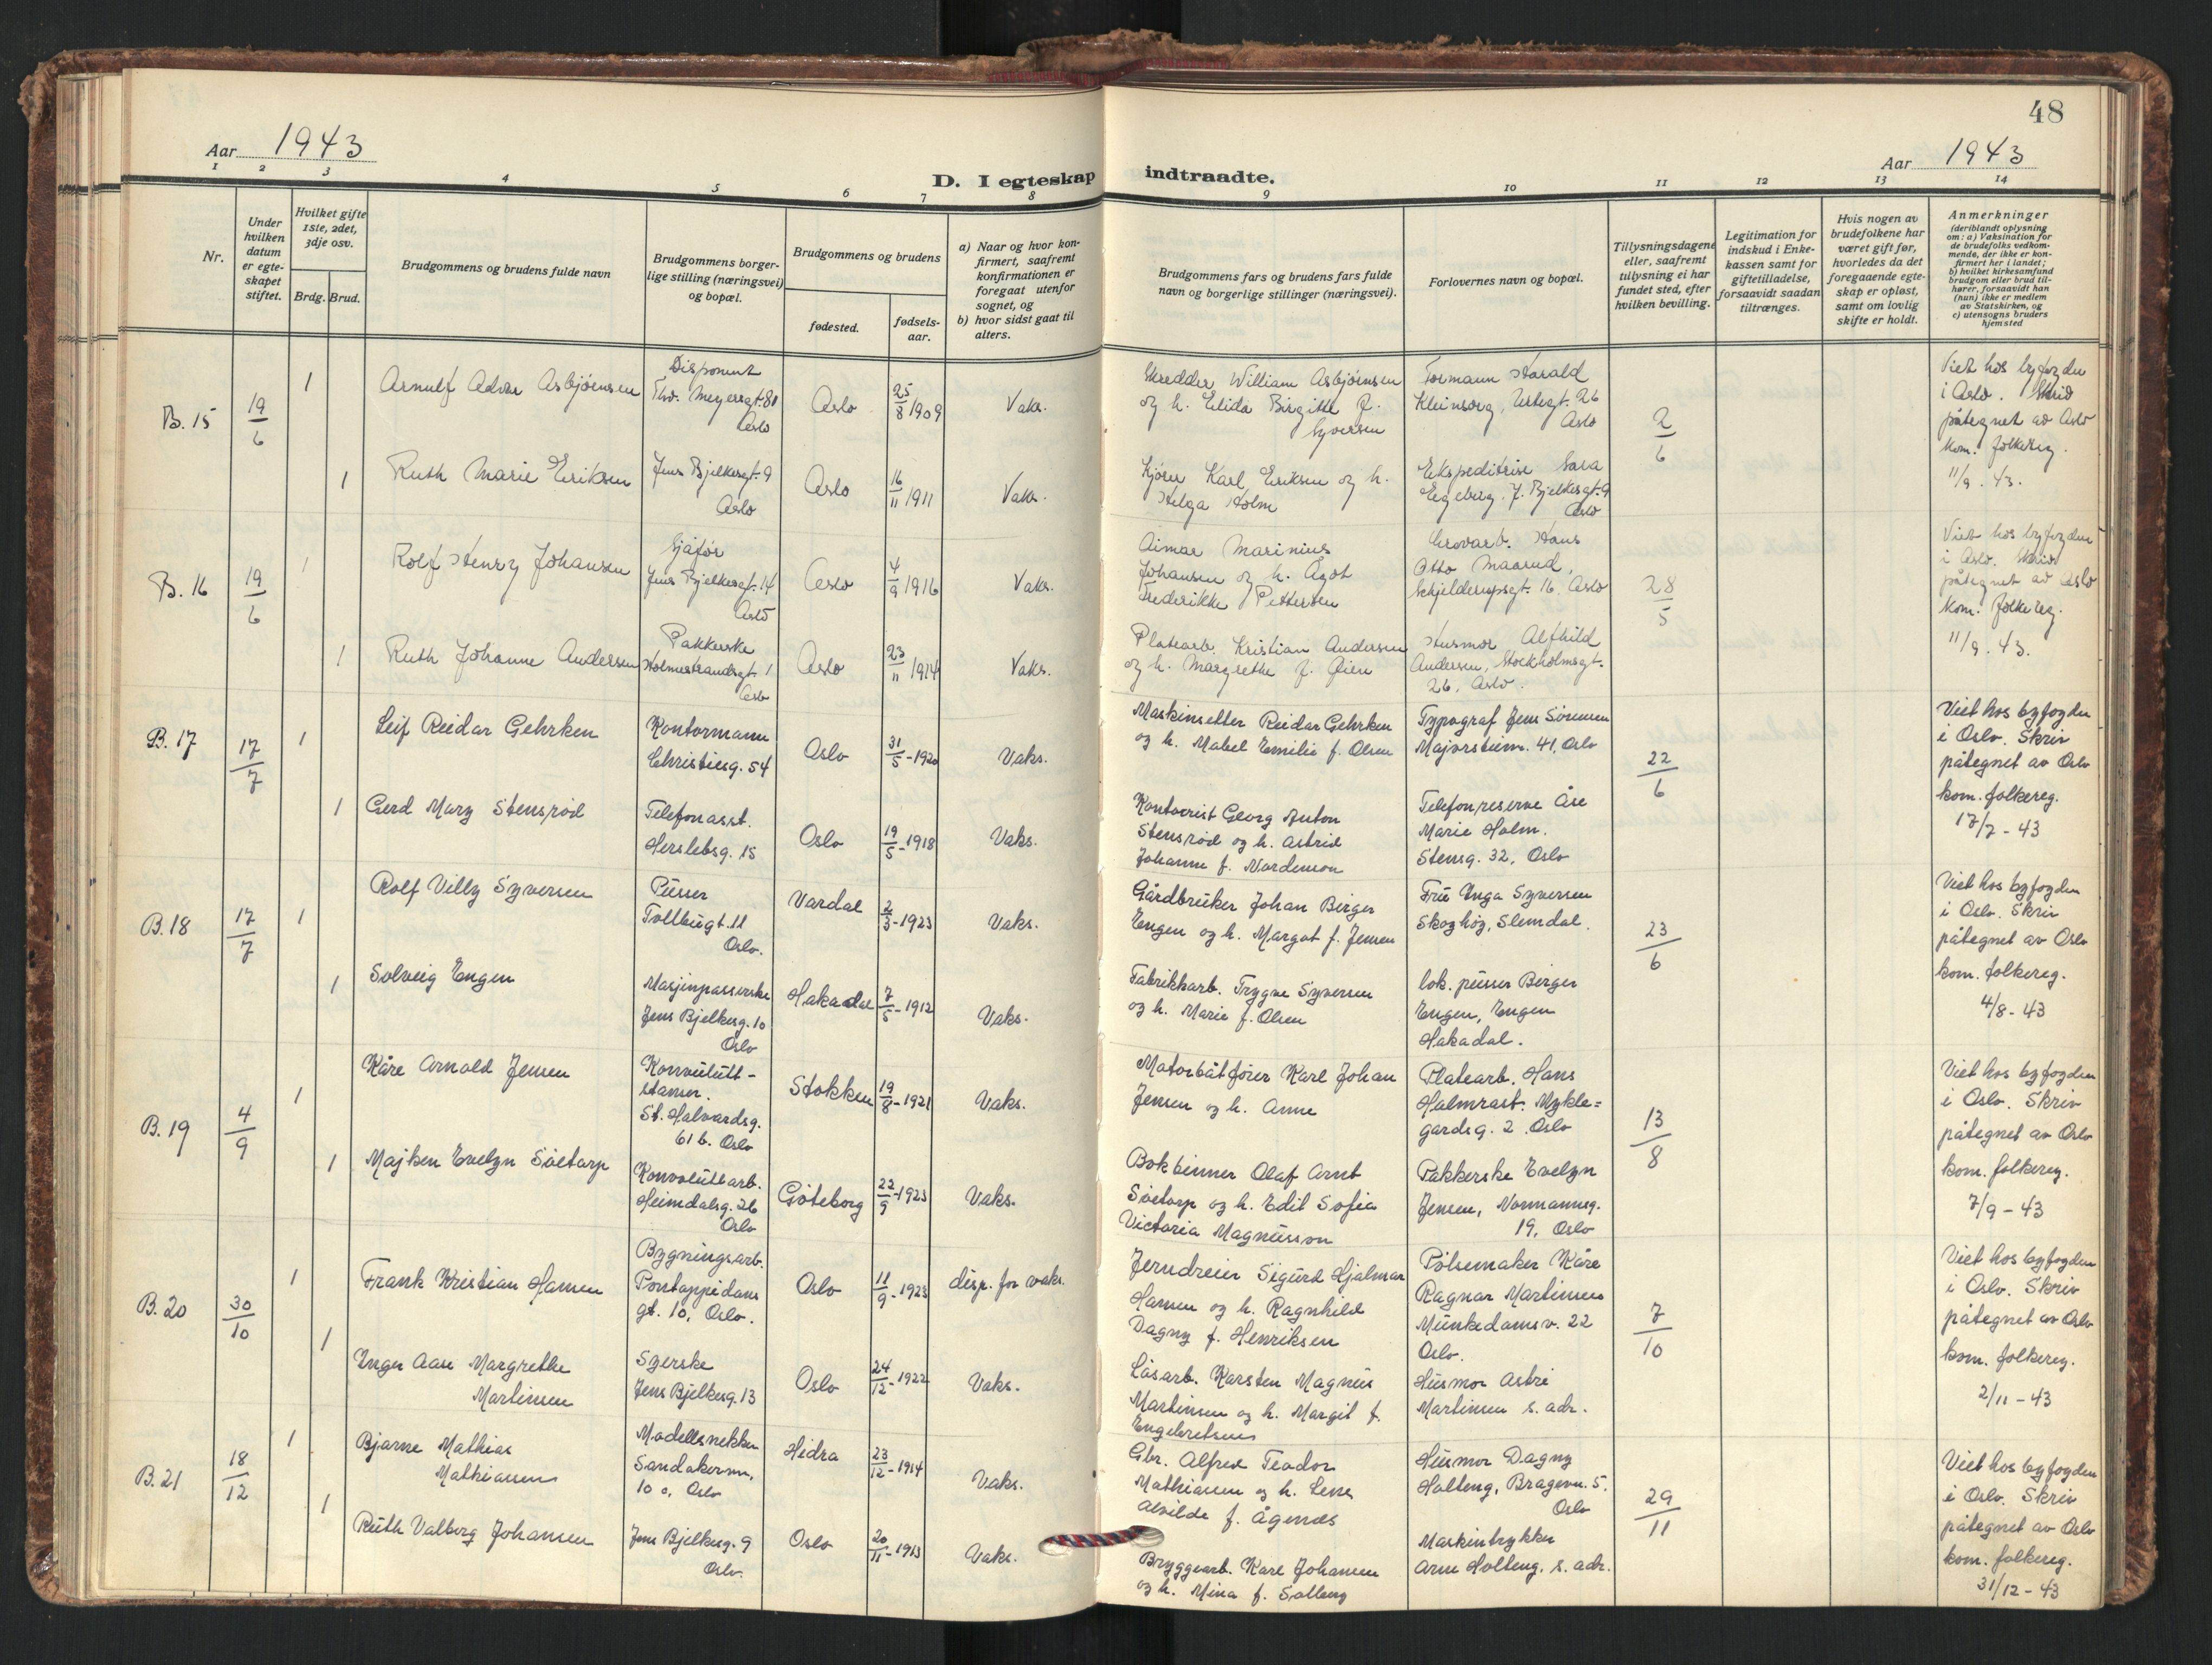 48
Aar 1943
Aar 1943
D. I egteskap indtraadte.
1 2 3 4 5 6 7 8 9 10 11 12 13 14
Nr.
Under hvilken datum er egteskapet stiftet.
Hvilket gifte 1ste, 2det, 3dje osv.
Brdg. Brud.
Brudgommens og brudens fulde navn
Brudgommens borgerlige stilling (næringsvei) og bopæl.
Brudgommens og brudens
fødested.
fødselsaar.
a) Naar og hvor konfirmert, saafremt konfirmationen er foregaat utenfor sognet, og
b) hvor sidst gaat til alters.
Brudgommens fars og brudens fars fulde navn og borgerlige stillinger (næringsvei).
Forlovernes navn og bopæl.
Tillysningsdagene eller, saafremt tillysning ei har fundet sted, efter hvilken bevilling.
Legitimation for indskud i Enkekassen samt for giftetilladelse, forsaavidt saadan tiltrænges.
Hvis nogen av brudefolkene har været gift før, hvorledes da det foregaaende egteskap er opløst, samt om lovlig skifte er holdt.
Anmerkninger
(deriblandt oplysning om: a) Vaksination for de brudefolks vedkommende, der ikke er konfirmert her i landet;
b) hvilket kirkesamfund brudgom eller brud tilhører, forsaavidt han (hun) ikke er medlem av Statskirken, og
c) utensogns bruders hjemsted
B. 15
19/6
1
Arnulf Advar Asbjørnsen
Disponent
Thv. Meyersgt. 81
Oslo
Oslo
25/8 1909
Vaks.
Skredder William Asbjørnsen
og h. Elida Birgitte f.
Syversen
Formann Harald
Kleinsorg, Urtegt. 26
Oslo
2/6
Viet hos byfogden
i Oslo. Skriv
påtegnet av Oslo
kom. folkereg.
11/9. 43.
1
Ruth Marie Eriksen
Jens Bjelkesgt. 9
Oslo
Oslo
16/11 1911
Vaks.
Kjører Karl Eriksen og h.
Helga Holm
Ekspeditrise Sara
Egeberg, J. Bjelkesgt. 9
Oslo
B. 16
19/6
1
Rolf Henry Johansen
Sjåfør
Jens Bjelkesgt. 14
Oslo
Oslo
4/9 1916
Vaks.
Aimar Marinius
Johansen og h. Ågot
Frederikke Pettersen
Grovarb. Hans
Otto Maarud,
Schjelderupsgt. 16. Oslo
28/5
Viet hos byfogden
i Oslo. Skriv
påtegnet av Oslo
kom. folkereg.
11/9. 43.
1
Ruth Johanne Andersen
Pakkerske
Holmestrandsgt. 1
Oslo
Oslo
23/11 1914
Vaks.
Platearb. Kristian Andersen
og h. Margrethe f. Øien
Husmor Alfhild
Andersen, Stockholmsgt.
26, Oslo.
B. 17
17/7
1
Leif Reidar Gehrken
Kontormann
Christiesg. 54
Oslo
31/5-1920
Vaks.
Maskinsetter Reidar Gehrken
og h. Mabel Emilie f. Olsen
Typograf Jens Sørensen
Majorstuen. 41, Oslo
22/6
Viet hos byfogden
i Oslo. Skriv
påtegnet av Oslo
kom. folkereg.
17/7-43
1
Gerd Mary Stensrød
Telefonasst.
Herslebsg. 15
Oslo
19/5-1918
Vaks.
Kontorist Georg Anton
Stensrød og h. Astrid
Johanne f. Nordenson
Telefonreserve Åse
Marie Holm.
Stensg. 32, Oslo
B. 18
17/7
1
Rolf Villy Syversen
Pusser
Tollbugt. 11
Oslo.
Vardal
2/3-1923
Vaks.
Gårdbruker Johan Birger
Engen og h. Margot f. Jensen
Fru Inga Syversen
Skoghøy, Slemdal.
23/6
Viet hos byfogden
i Oslo. Skriv
påtegnet av Oslo
kom. folkereg.
4/8-43
1
Solveig Engen
Masjinpasserske
Jens Bjelkesg. 10
Oslo
Hakadal
7/5-1912
Vaks.
Fabrikkarb. Trygve Syversen
og h. Marie f. Olsen
Lok. pusser Birger
Engen, Engen
Hakadal.
B. 19
4/9
1
Kåre Arnold Jensen
Konvolutt-
stanser.
St. Halvardsg.
61 b. Oslo
Stokken
19/8-1921
Vaks.
Motorbåtfører Karl Johan
Jensen og h. Anne
Platearb. Hans
Halmrast. Mykle=
gardsg. 2. Oslo
13/8
Viet hos byfogden
i Oslo. Skriv
påtegnet av Oslo
kom. folkereg.
7/9-43
1
Majken Evelyn Söetorp
Konvoluttarb.
Heimdalsg. 26
Oslo
Göteborg
22/9-1923
Vaks.
Bokbinner Olaf Arnt
Söetorp og h. Edit Sofia
Victoria Magnusson
Pakkerske Evelyn
Jensen, Normannsg.
19, Oslo
B. 20
30/10
1
Frank Kristian Hansen
Bygningsarb.
Pontoppidans
gt. 10, Oslo.
Oslo
11/9-1923
disp. for vaks.
Jerndreier Sigurd Hjalmar
Hansen og h. Ragnhild
Dagny f. Henriksen
Pølsemaker Kåre
Ragnar Martinsen
Munkedamsv. 22
Oslo.
7/10
Viet hos byfogden
i Oslo. Skriv
påtegnet av Oslo
kom. folkereg.
2/11-43
1
Inger Aase Margrethe
Martinsen
Syerske
Jens Bjelkesg. 13
Oslo
24/12-1922
Vaks.
Låsarb. Karsten Magnus
Martinsen og h. Margit f.
Engebretsen
Husmor Astri
Martinsen s. adr.
B. 21
18/12
1
Bjarne Mathias
Mathiassen
Modellsnekker
Sandakerven.
10 c, Oslo
Hidra
23/12-1914
Vaks.
Gbr. Alfred Teodor
Mathiassen og h. Lene
Alvilde f. Ågenes
Husmor Dagny
Holteng, Bragesv. 5.
Oslo
29/11
Viet hos byfogden
i Oslo. Skriv
påtegnet av Oslo
kom. folkereg.
31/12-43
1
Ruth Valborg Johansen
Jens Bjelkesg. 9
Oslo.
Oslo
20/11-1913
Vaks.
Bryggearb. Karl Johansen
og h. Mina f. Solberg
Maskintrykker
Arne Holteng, s. adr.